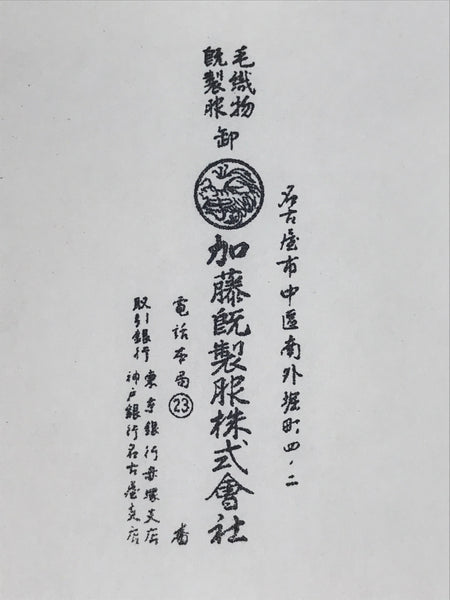 名古屋市中區南外堀町四ノ二
毛織物
既製服
卸
加藤既製服株式會社
電話本局㉓番
取引銀行 東京銀行赤塚支店
神戸銀行名古屋支店